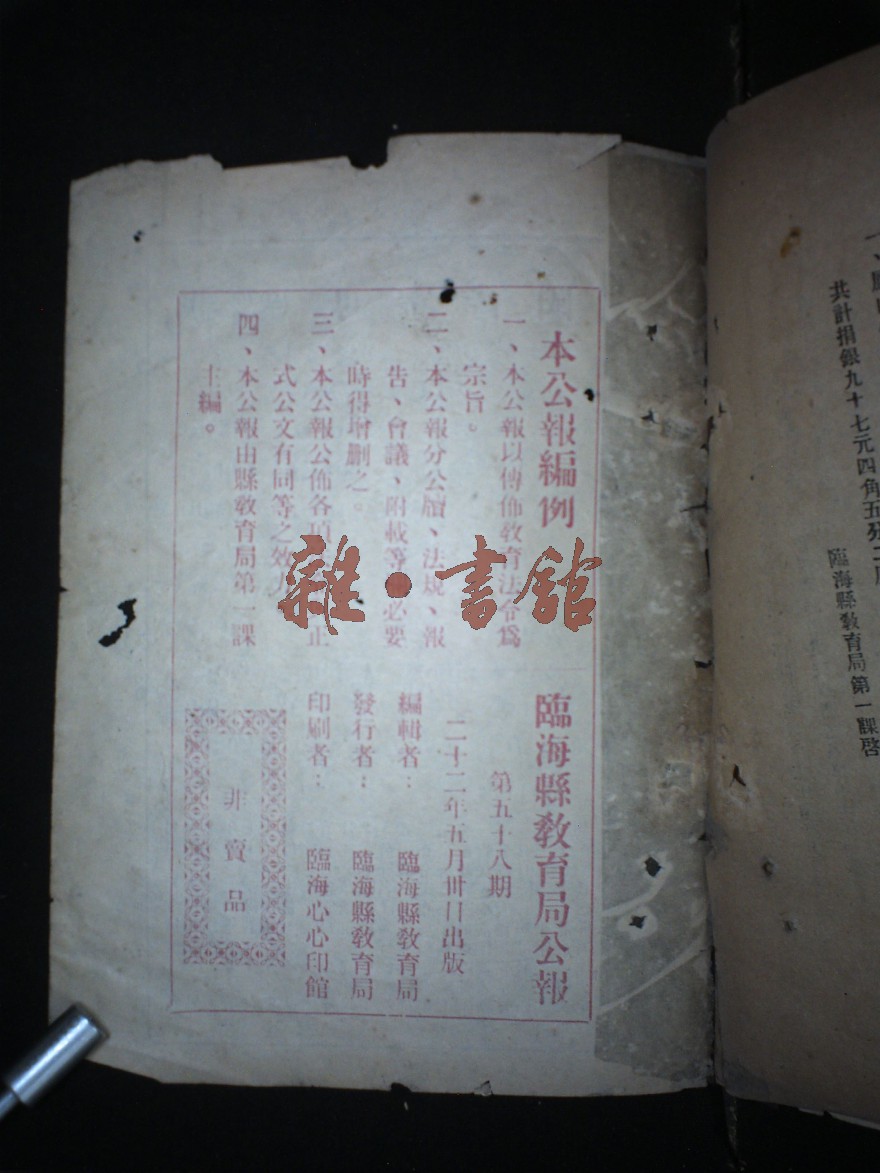 共計捐銀九十七元四角五分
臨海縣教育局第一課啓
本公報編例
一、本公報以傳佈教育法令爲
宗旨。
二、本公報分公牘、法規、報
告、會議、附載等 必要
時得增刪之。
三、本公報公佈各項 正
式公文有同等之效力
四、本公報由縣教育局第一課
主編。
臨海縣教育局公報
第五十八期
二十二年五月卅日出版
編輯者： 臨海縣教育局
發行者： 臨海縣教育局
印刷者： 臨海心心印館
非賣品
雜·書館